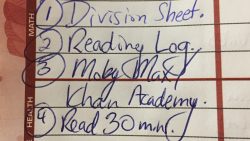 MATH
① Division Sheet.
② Reading Log.
③ Moby Max/
Khan Academy.
HEALTH
④ Read 30 min.